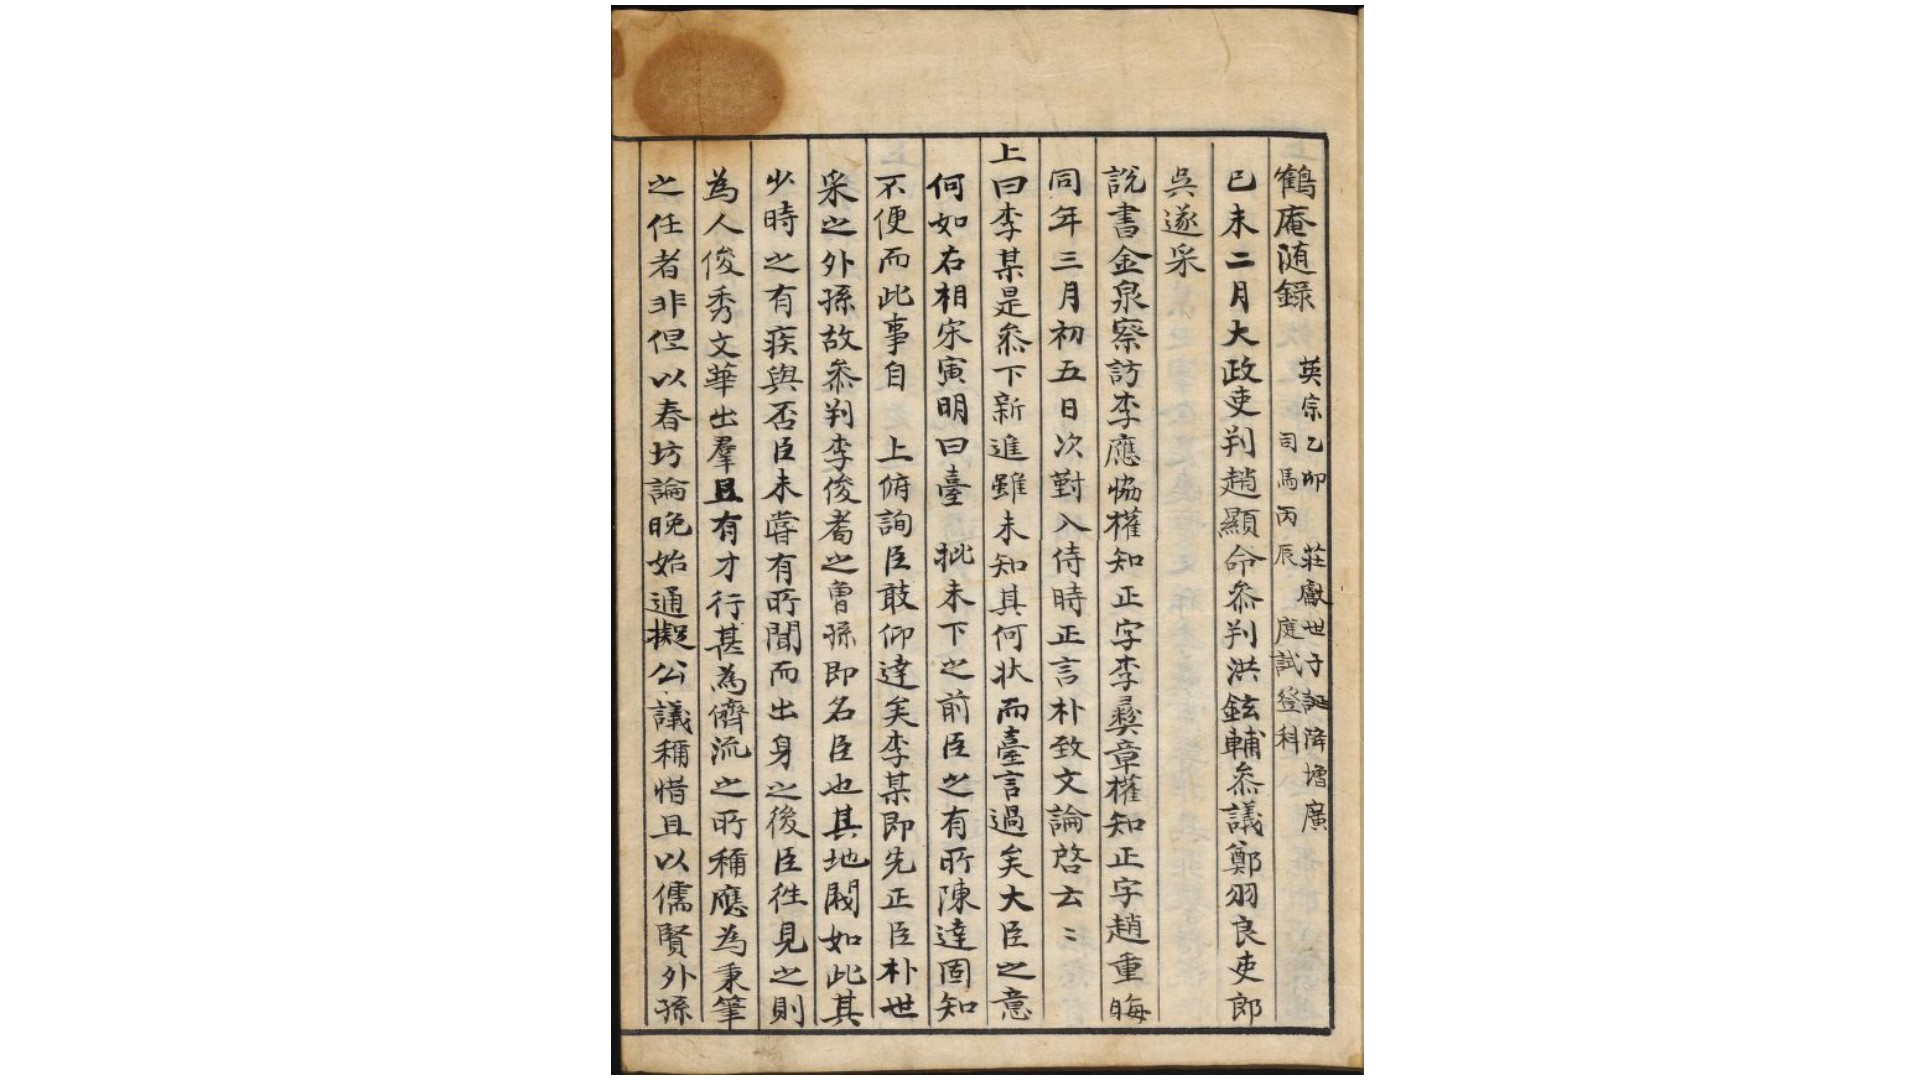 鶴庵随錄
英宗乙卯 莊獻世子誕降增廣
司馬丙辰 庭試登科
已未二月大政吏判趙顯命叅判洪鉉輔叅議鄭羽良吏郎
吳遂采
說書金泉察訪李應恊權知正字李彛章權知正字趙重晦
同年三月初五日次對入侍時正言朴致文論啓云〻
上曰李某是叅下新進雖未知其何狀而臺言過矣大臣之意
何如右相宋寅明曰臺 批未下之前臣之有所陳達固知
不便而此事自 上俯詢臣敢仰達矣李某即先正臣朴世
采之外孫故叅判李俊耉之曾孫即名臣也其地閥如此其
少時之有疾與否臣未嘗有所聞而出身之後臣徃見之則
為人俊秀文華出羣且有才行甚為儕流之所稱應為秉筆
之任者非但以春坊論晩始通擬公議稱惜且以儒賢外孫